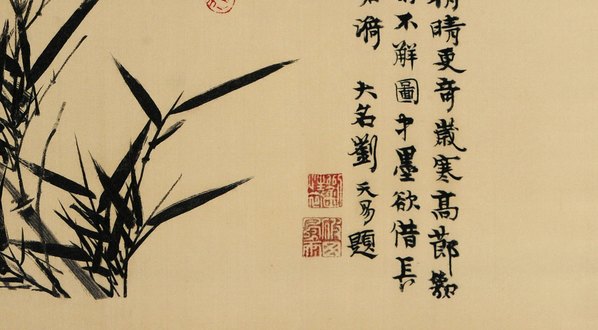 晴更奇歲寒高節
不解圖中墨欲借長
漪 大名劉天易題